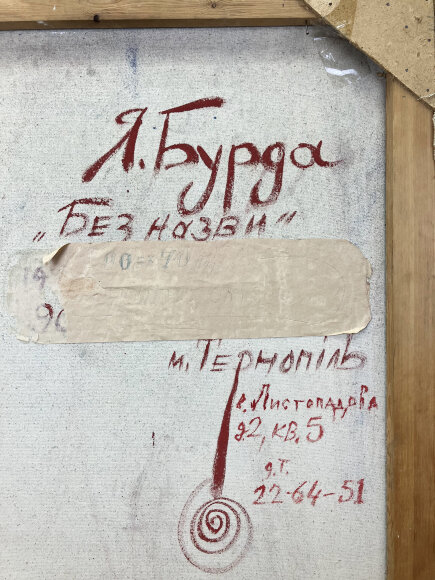 Я. Бурда
„Без назви“
м. Тернопіль
в. Листопадова
д2, кв. 5
д.т.
22-64-51